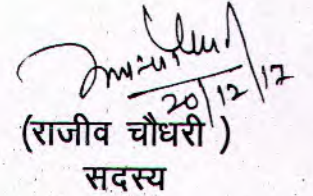 20/12/17
(राजीव चौधरी )
सदस्य